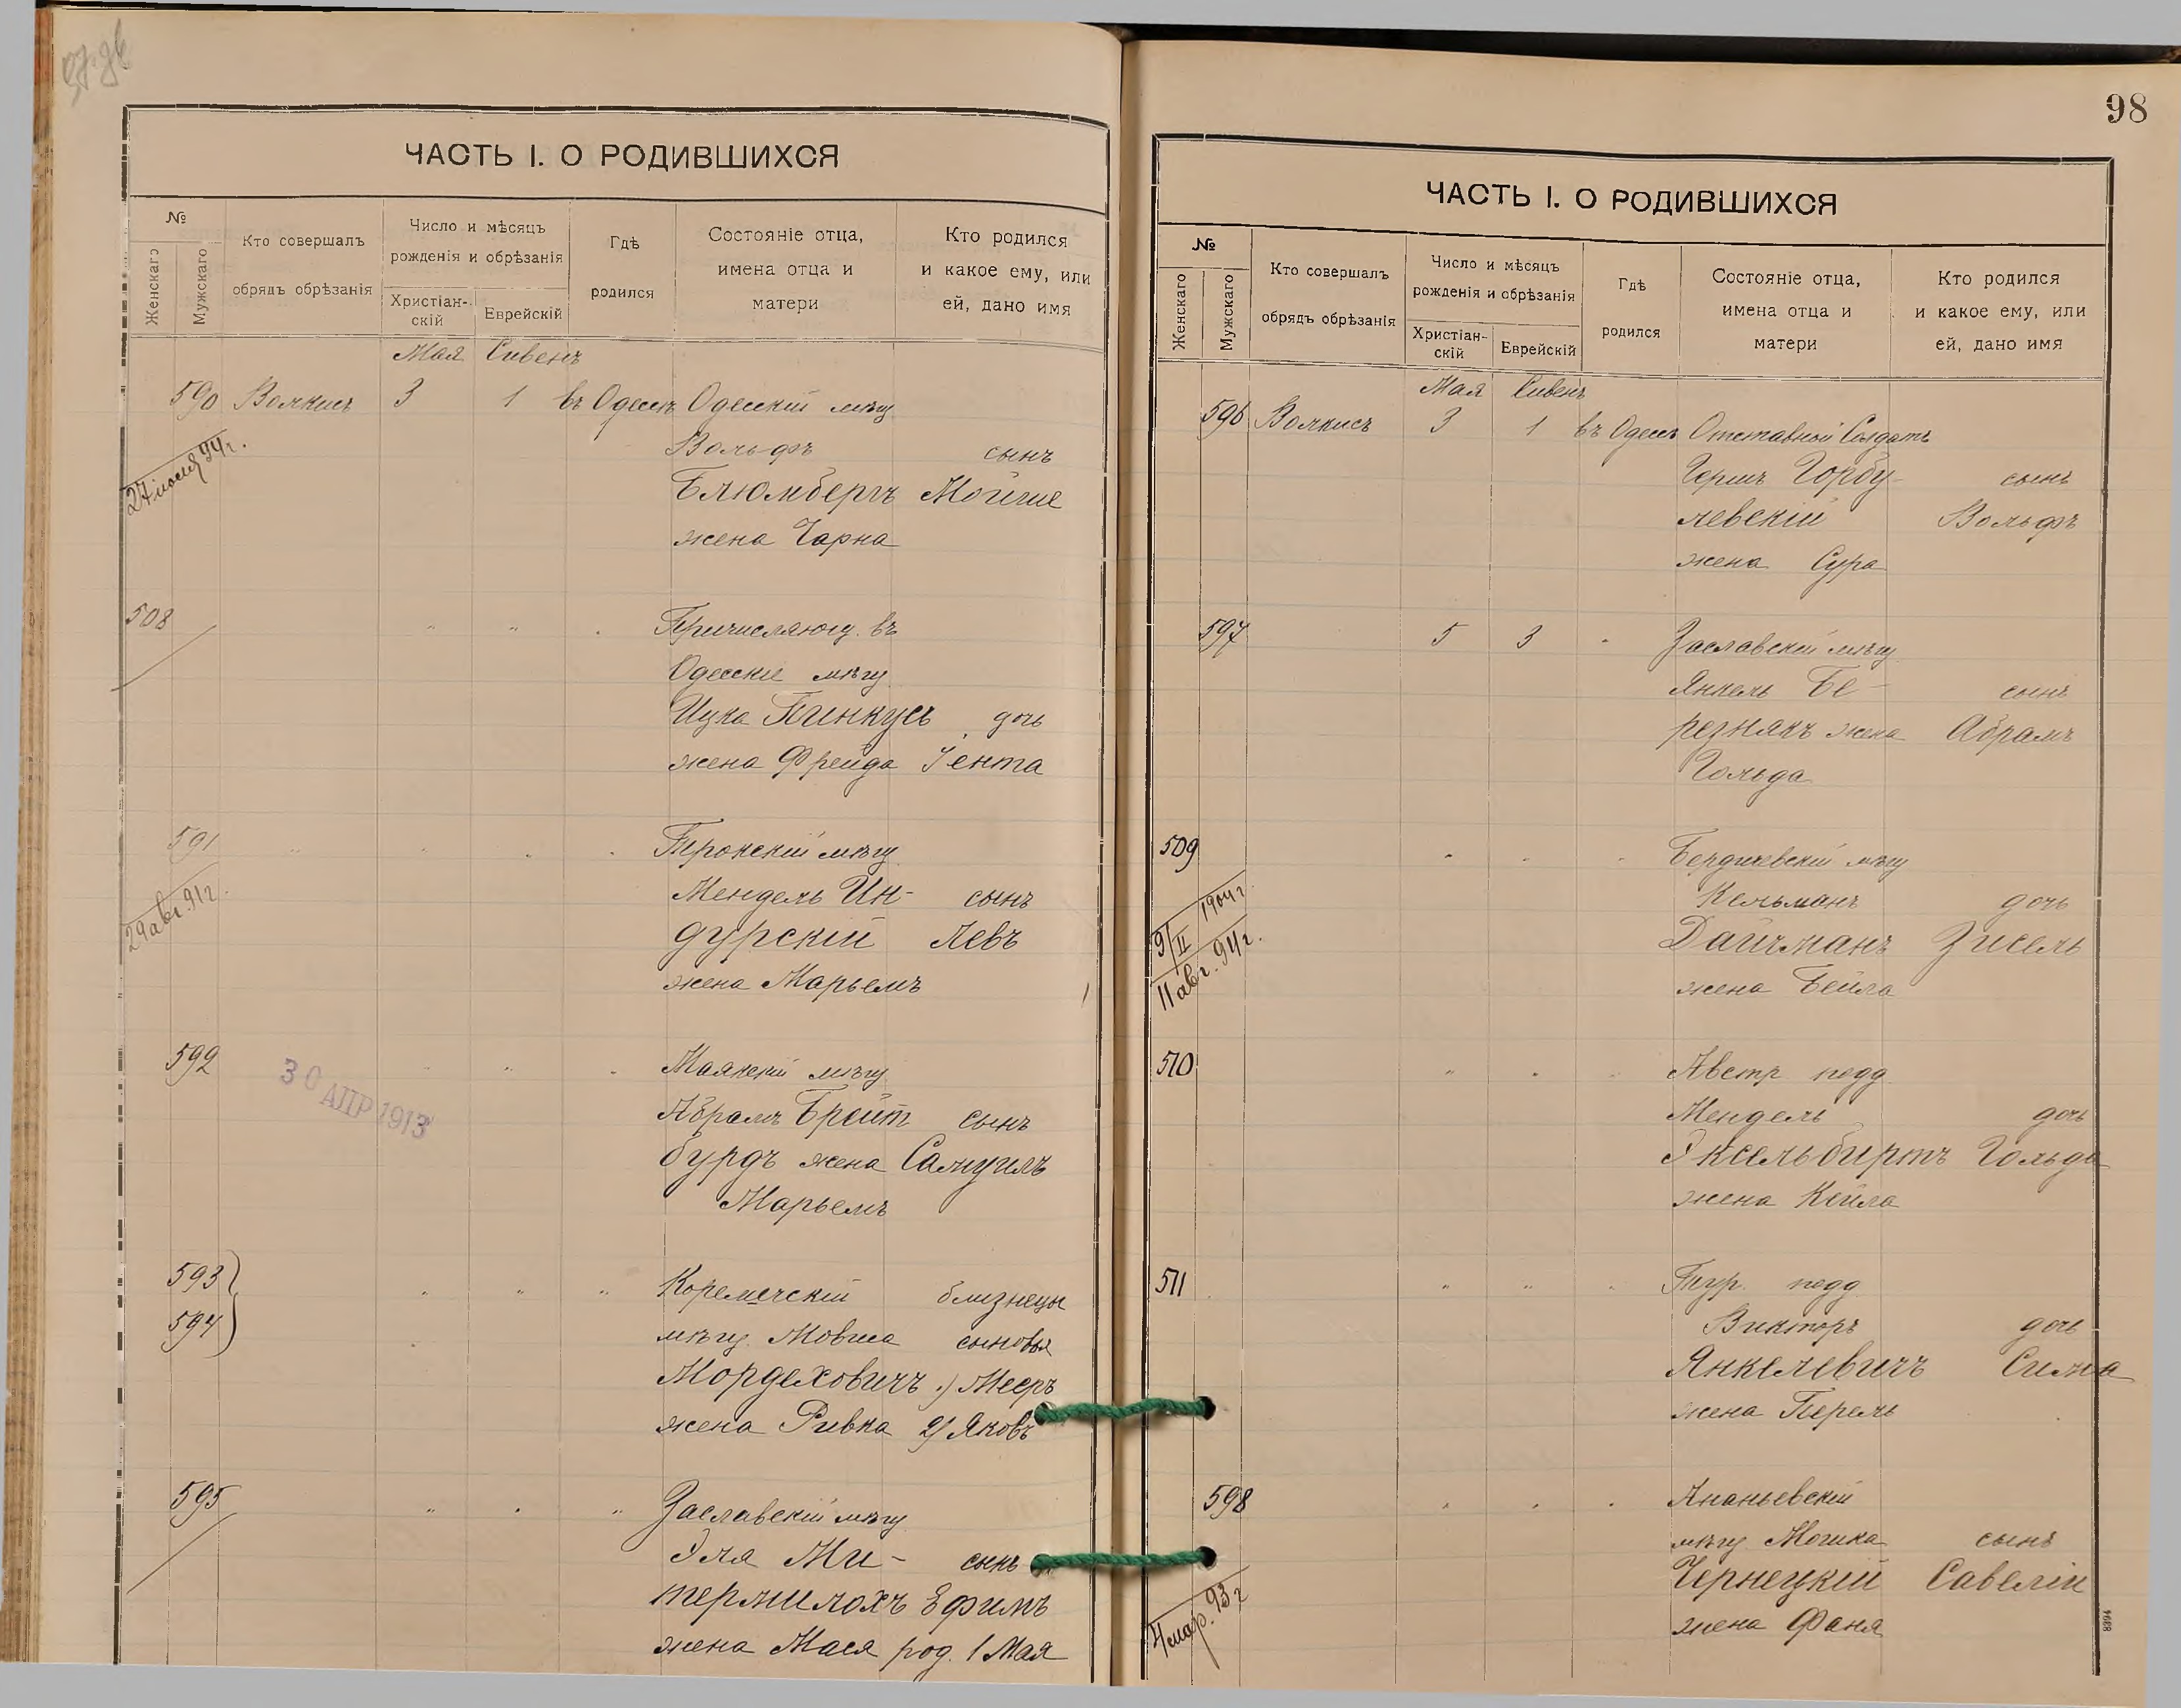 ЧАСТЬ I. О РОДИВШИХСЯ
№
Женскаго
Мужскаго
Кто совершалъ
обрядъ обрѣзанія
Число и мѣсяцъ
рожденія и обрѣзанія
Христіан-
скій
Еврейскій
Гдѣ
родился
Состояніе отца,
имена отца и
матери
Кто родился
и какое ему, или
ей, дано имя
Мая Сивенъ
590 Волкисъ 3 1 въ Одессѣ Одесскій мѣщ
Вольфъ сынъ
27 іюля 94 г.
Блюмбергъ Мойше
жена Чарна
508 " " " Причисляющ. въ
Одесскіе мѣщ
Ицка Пинкусъ дочь
жена Фрейда Гента
591 " " " " Трокскій мѣщ
Мендель Ин- сынъ
29 авг. 91 г.
дурскій Левъ
жена Марьемъ
592 " " " Маякскій мѣщ
30 АПР 1913
Абрамъ Брейт сынъ
бурдъ жена Самуилъ
Марьемъ
593 " " " Коремечскій близнецы
594 " мѣщ. Мовша сыновья
Мордеховичъ 1) Мееръ
жена Ривка 2) Яковъ
595 " " " Заславскій мѣщ
Эля Ми- сынъ
термилохъ Ефимъ
жена Мася род. 1 Мая
98
ЧАСТЬ I. О РОДИВШИХСЯ
№
Женскаго
Мужскаго
Кто совершалъ
обрядъ обрѣзанія
Число и мѣсяцъ
рожденія и обрѣзанія
Христіан-
скій
Еврейскій
Гдѣ
родился
Состояніе отца,
имена отца и
матери
Кто родился
и какое ему, или
ей, дано имя
Мая Сивенъ
596 Волкисъ 3 1 въ Одессѣ Отставной Солдатъ
Гершъ Горбу- сынъ
левскій Вольфъ
жена Сура
597 5 3 " Заславскій мѣщ
Янкель Бе- сынъ
резнякъ жена Абрамъ
Гольда
509 " " " Бердичевскій мѣщ
Кельманъ дочь
9/II 1904 г.
11 авг. 94 г.
Дайчманъ Зисель
жена Бейла
510 " " " Австр. подд
Мендель дочь
Эксельбиртъ Гольда
жена Кейла
511 " " " Тур. подд
Викторъ дочь
Янкелевичъ Сима
жена Перель
598 " " " Ананьевскій
мѣщ Мошка сынъ
Чернецкій Савелій
4 мар. 93 г
жена Фаня